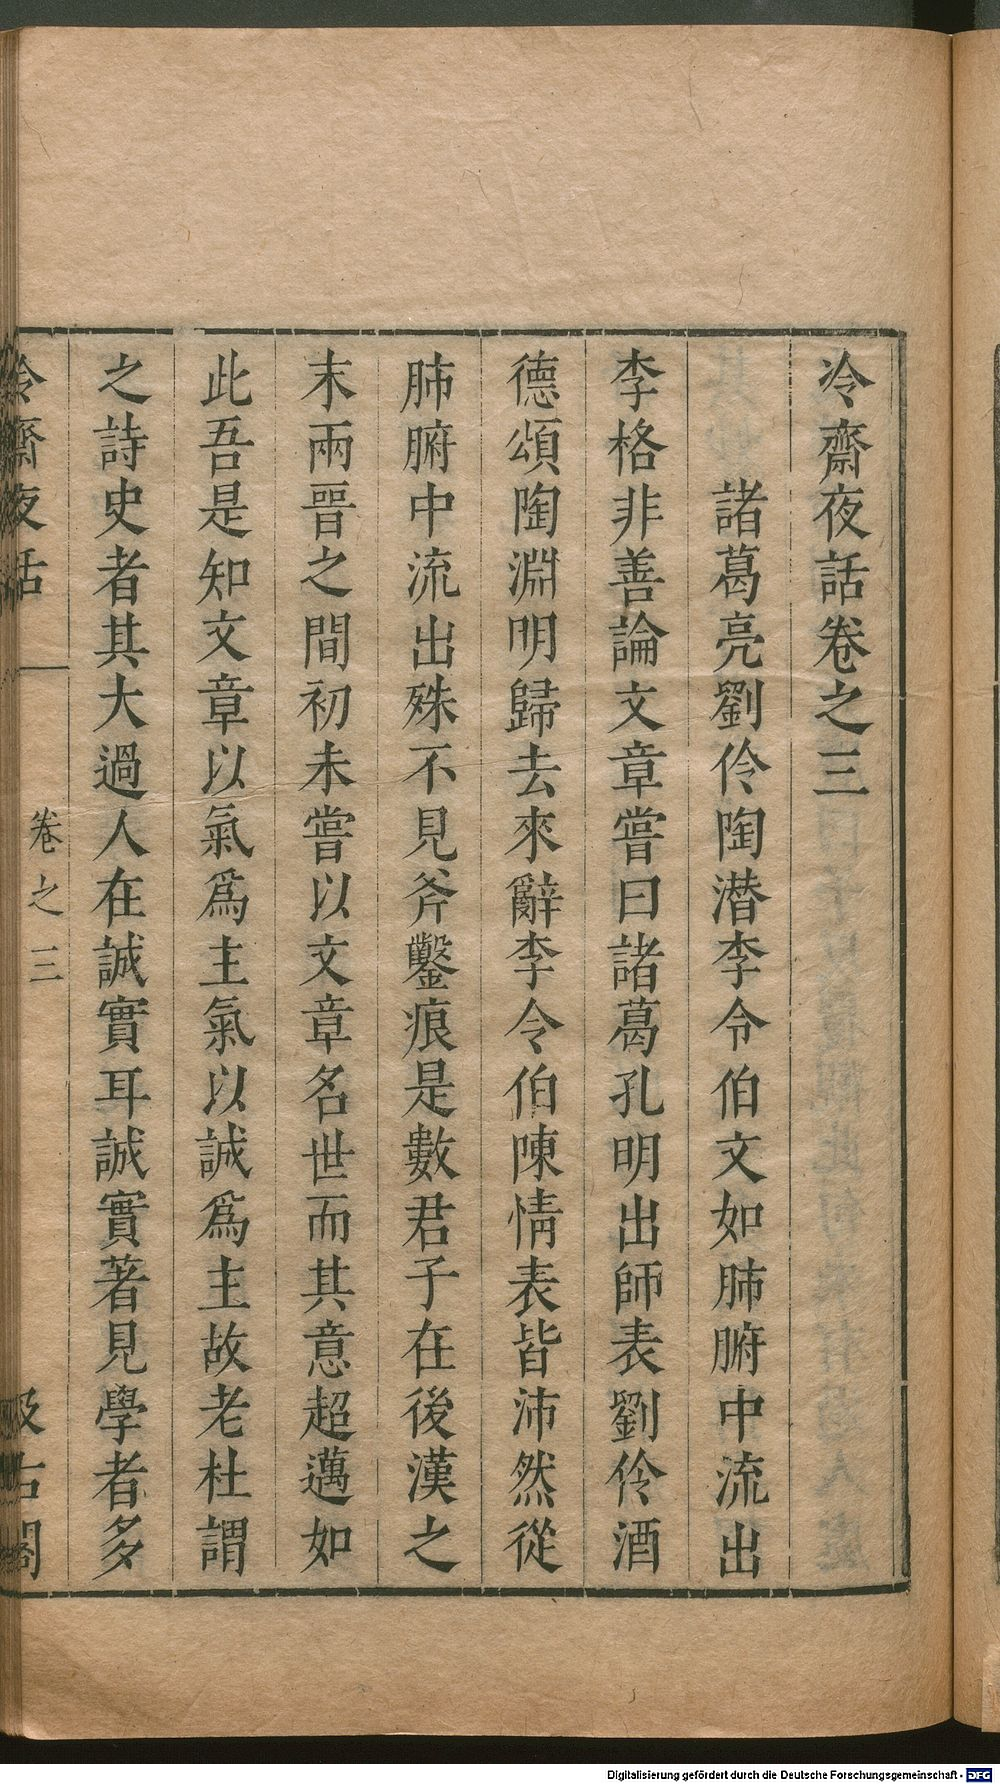 冷齋夜話卷之三
諸葛亮劉伶陶潛李令伯文如肺腑中流出
李格非善論文章嘗曰諸葛孔明出師表劉伶酒
德頌陶淵明歸去來辭李令伯陳情表皆沛然從
肺腑中流出殊不見斧鑿痕是數君子在後漢之
末兩晉之間初未嘗以文章名世而其意超邁如
此吾是知文章以氣爲主氣以誠爲主故老杜謂
之詩史者其大過人在誠實耳誠實著見學者多
冷齋夜話
卷之三
汲古閣
Digitalisierung gefördert durch die Deutsche Forschungsgemeinschaft - DFG